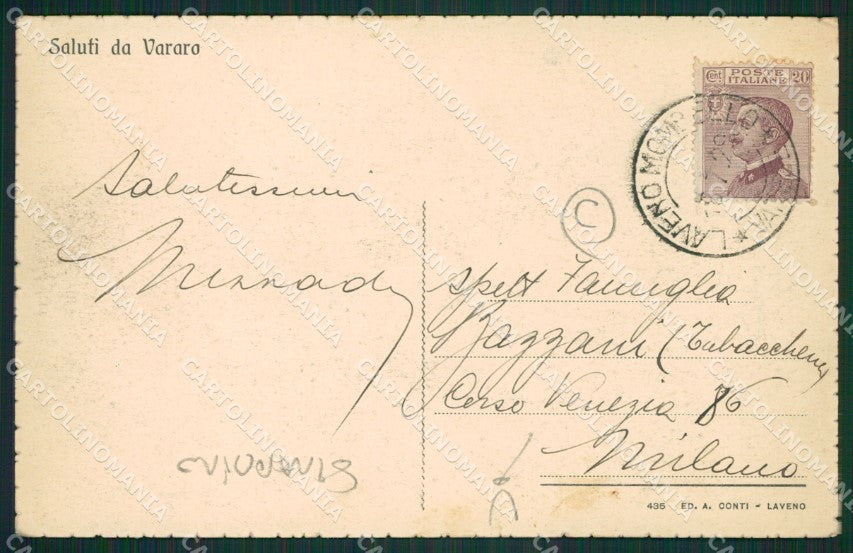 Saluti da Vararo
Cent. POSTE ITALIANE 20
LAVENO MOMBELLO
Salutissimi
C
Spett Famiglia
Razzani (Tabaccheria
Corso Venezia 86
Milano
435 ED. A. CONTI - LAVENO
CARTOLINOMANIA